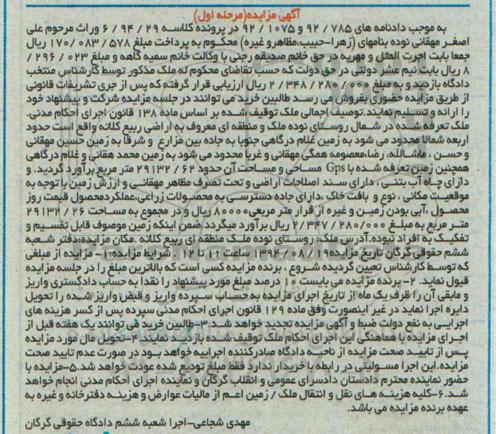 آگهی مزایده(مرحله اول)
به موجب دادنامه های ۷۸۵ / ۹۲ و ۱۰۷۵ / ۹۲ در پرونده کلاسه ۲۹ / ۹۴ / ۶ وراث مرحوم علی
اصغر مهقانی نوده بنامهای (زهرا-حبیب،مظاهرو غیره) محکوم به پرداخت مبلغ ۵۷۸ / ۰۸۳ / ۱۷۰ ریال
جمعا بابت اجرت المثل و مهریه در حق خانم صدیقه رجنی با وکالت خانم سمیه گاهه و مبلغ ۰۲۳ / ۲۹۶ /
۸ ریال بابت نیم عشر دولتی در حق دولت که حسب تقاضای محکوم له ملک مذکور توسط کارشناس منتخب
دادگاه بازدید و به مبلغ ۰۰۰ / ۲۸۰ / ۳۴۸ / ۲ ریال ارزیابی قرار گرفته که پس از جری تشریفات قانونی
از طریق مزایده حضوری بفروش می رسد طالبین خرید می توانند در جلسه مزایده شرکت و پیشنهاد خود
را ارائه و تسلیم نمایند.توصیف اجمالی ملک توقیف شده بر اساس ماده ۱۳۸ قانون اجرای احکام مدنی.
ملک تعرفه شده در شمال روستای نوده ملک و منطقه ای معروف به اراضی ربیع کلاته واقع است حدود
اربعه شمالا محدود می شود به زمین غلام درگاهی جنوبا به جاده بین مزارع و شرقا به زمین حسین مهقانی
و حسن ، ماشاالله، رضا،معصومه همگی مهقانی و غربا محدود می شود به زمین محمد هقانی و غلام درگاهی
همچنین زمین تعرفه شده با Gps مساحی و مساحت آن حدود ۶۲ / ۲۹۱۳۲ متر مربع برآورد گردید. و
دارای چاه آب بتنی ، دارای سند اصلاحات اراضی و تحت تصرف مظاهر مهقانی و ارزش زمین با توجه به
موقعیت مکانی ، نوع و بافت خاک ،دارای جاده دسترسی به محصولات زراعی،عملکردمحصول قیمت روز
محصول ،آبی بودن زمین و غیره از قرار متر مربعی ۸۰۰۰۰ ریال و در مجموع به مساحت ۲۶ / ۲۹۱۳۲
متر مربع به مبلغ ۰۰۰ / ۲۸۰ / ۳۴۷ / ۲ ریال برآورد میگردد.ضمن اینکه زمین موصوف قابل تقسیم و
تفکیک به افراد نبوده.آدرس ملک: روستای نوده ملک منطقه ای ربیع کلاته .مکان مزایده:دفتر شعبه
ششم حقوقی گرگان تاریخ مزایده ۱۳۹۴/۰۸/۱۹ ساعت ۱۱ تا ۱۲ . شرایط مزایده: ۱- مزایده از مبلغی
که توسط کارشناس تعیین گردیده شروع ، برنده مزایده کسی است که بالاترین مبلغ را در جلسه مزایده
قبول نماید. ۲- برنده مزایده می بایست ۱۰ درصد مبلغ مورد پیشنهاد را نقدا به حساب دادگستری واریز
و مابقی آن را ظرف یک ماه از تاریخ اجرای مزایده به حساب سپرده واریز و قبض واریز شده را تحویل
دایره اجرا نماید در غیر اینصورت وفق ماده ۱۲۹ قانون اجرای احکام مدنی سپرده پس از کسر هزینه های
اجرایی به نفع دولت ضبط و آگهی مزایده تجدید خواهد شد.۳-طالبین خرید می توانند یک هفته قبل از
اجرای مزایده با هماهنگی این اجرای احکام ملک توقیف شده بازدید نمایند.۴-تحویل مال مورد مزایده
پس از تایید صحت مزایده از ناحیه دادگاه صادرکننده اجراییه خواهد بود در صورت عدم تایید صحت
مزایده،این اجرا مسولیتی در رابطه با خریدار ندارد فقط مبلغ تودیع شده عودت خواهد شد.۵-مزایده با
حضور نماینده محترم دادستان دادسرای عمومی و انقلاب گرگان و نماینده اجرای احکام مدنی انجام خواهد
شد.۶-کلیه هزینه های نقل و انتقال ملک / زمین اعم از مالیات عوارض و هزینه دفترخانه و غیره به
عهده برنده مزایده می باشد.
مهدی شجاعی-اجرا شعبه ششم دادگاه حقوقی گرگان